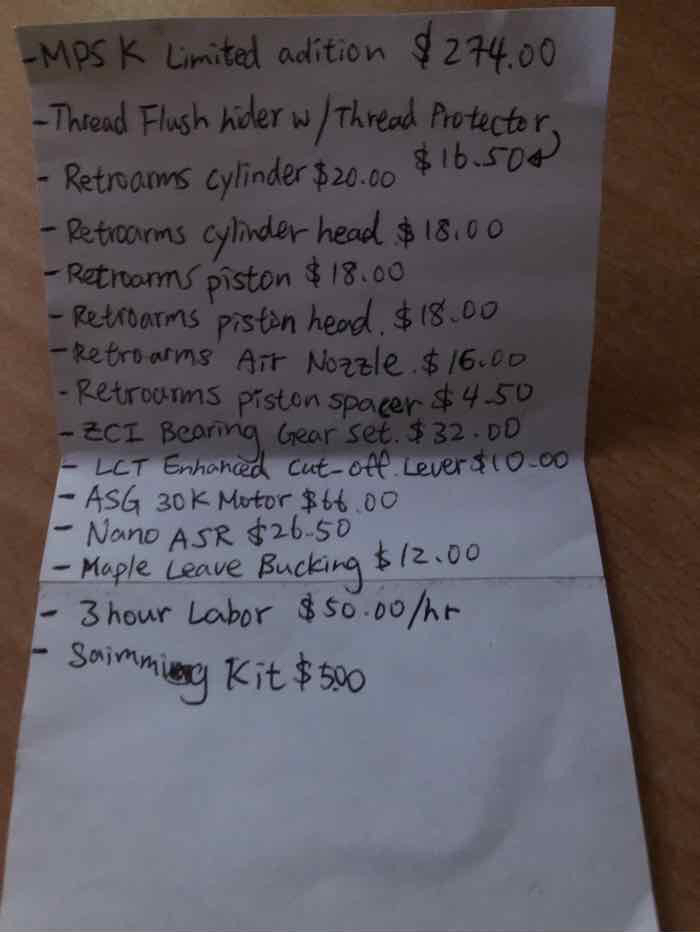 - MPS K Limited adition $274.00
- Thread Flush hider w/Thread Protector,
$16.50
- Retroarms cylinder $20.00
- Retroarms cylinder head $18.00
- Retroarms piston $18.00
- Retroarms piston head. $18.00
- Retroarms Air Nozzle. $16.00
- Retroarms piston spacer $4.50
- ZCI Bearing Gear set. $32.00
- LCT Enhanced cut-off Lever $10.00
- ASG 30K Motor $66.00
- Nano ASR $26.50
- Maple Leave Bucking $12.00
- 3 hour Labor $50.00/hr
- Saimming Kit $5.00